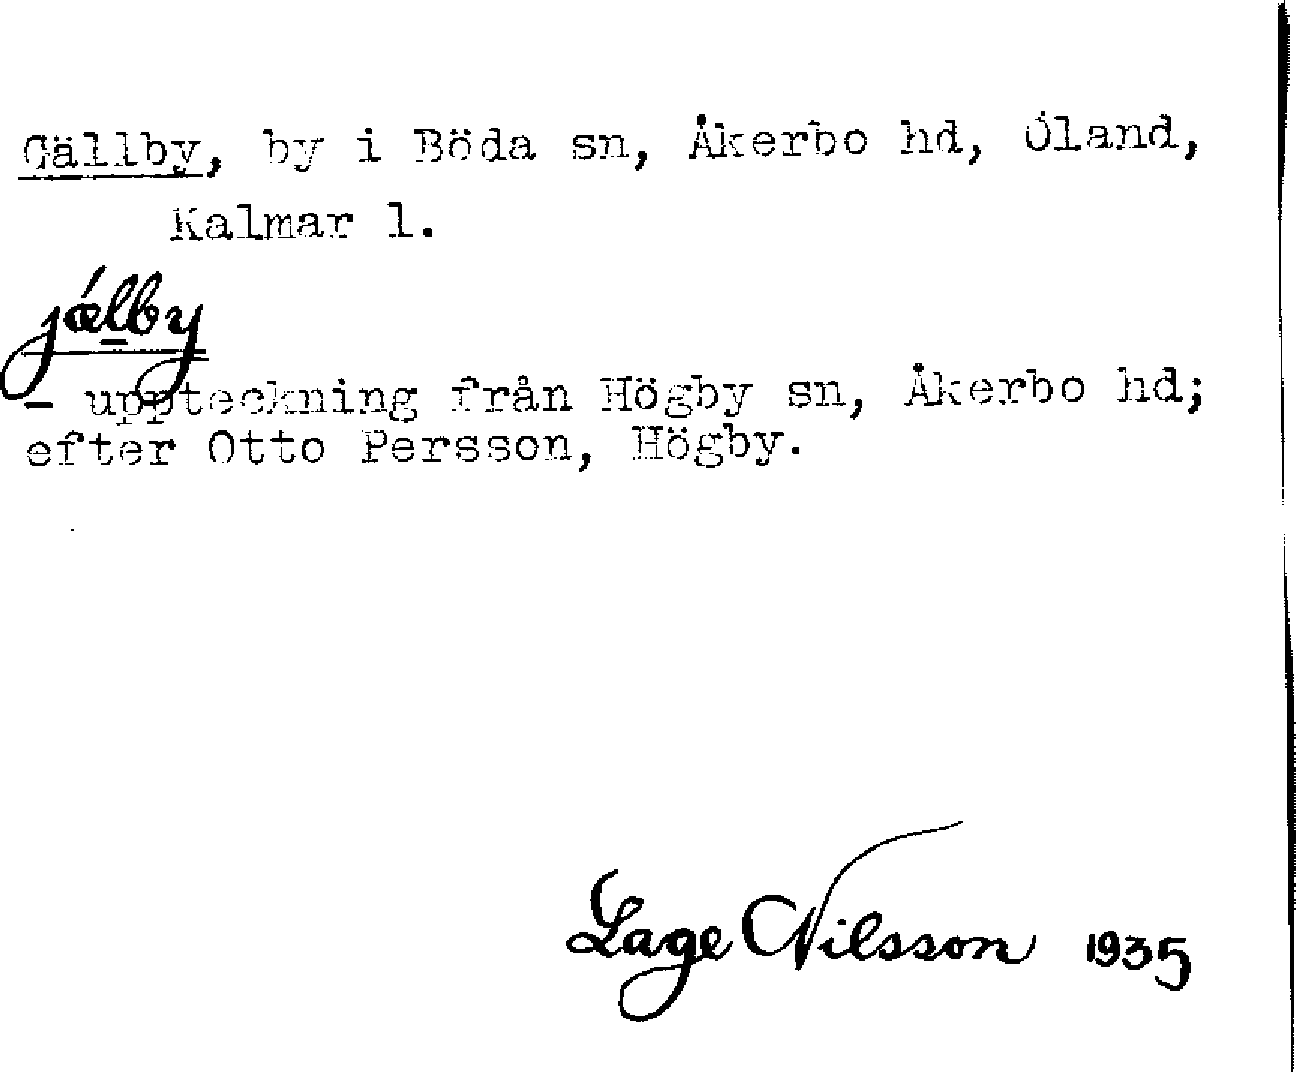 Gällby, by i Böda sn, Åkerbo hd, Öland,
Kalmar l.
jǽlby
- uppteckning från Högby sn, Åkerbo hd;
efter Otto Persson, Högby.
Lage Nilsson 1935